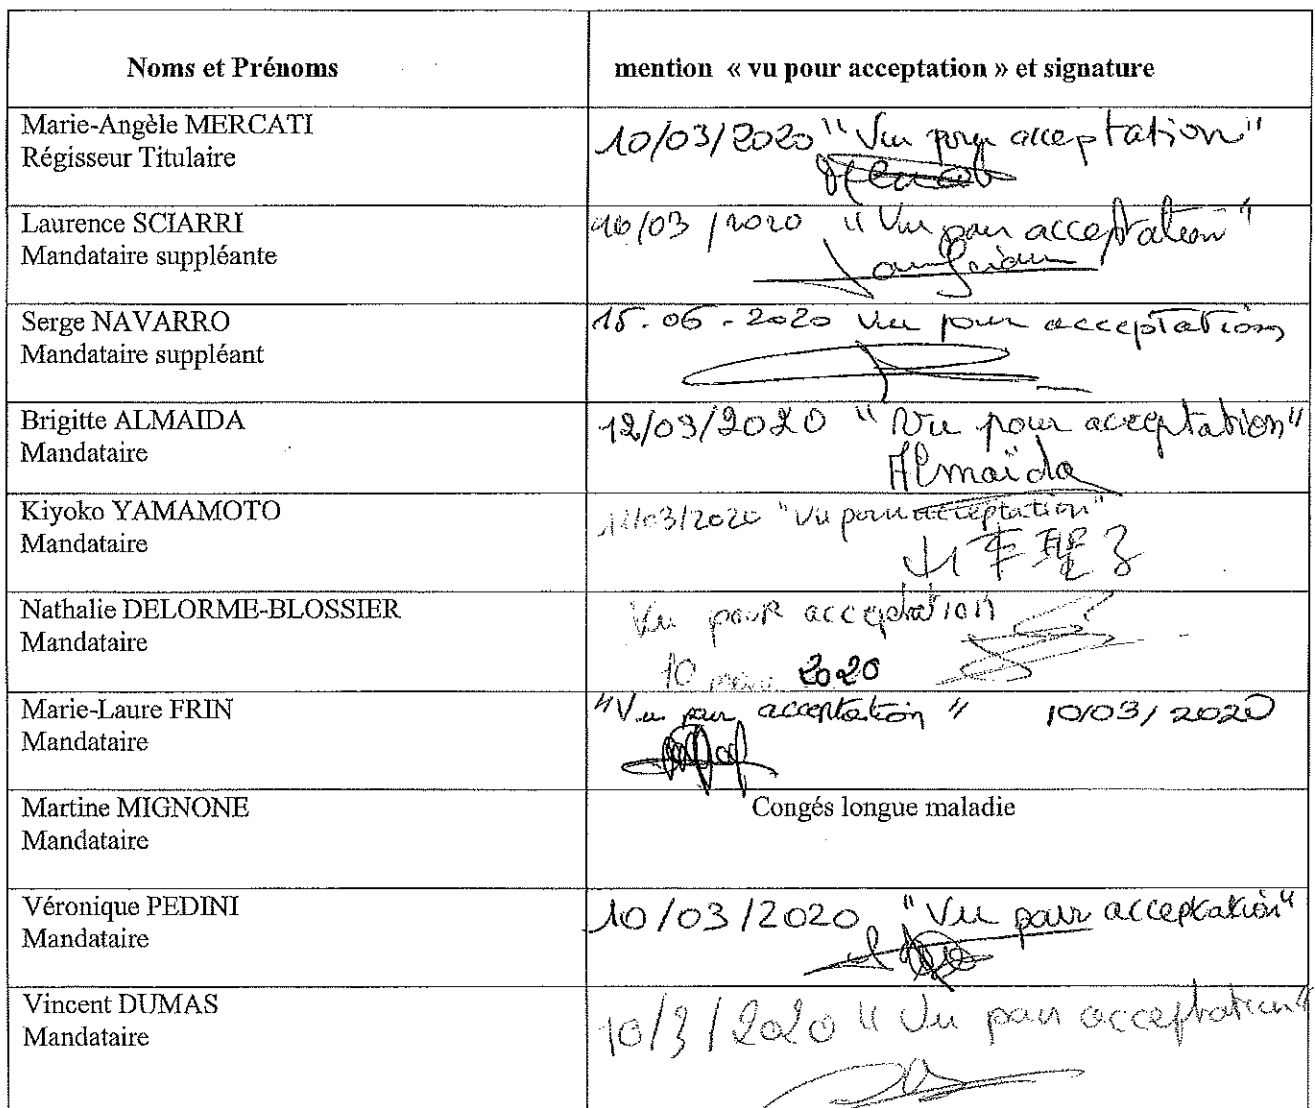 Noms et Prénoms
mention « vu pour acceptation » et signature
Marie-Angèle MERCATI
Régisseur Titulaire
10/03/2020 "Vu pour acceptation"
Laurence SCIARRI
Mandataire suppléante
10/03/2020 "Vu pour acceptation"
Serge NAVARRO
Mandataire suppléant
15-06-2020 Vu pour acceptation
Brigitte ALMAIDA
Mandataire
12/03/2020 "Vu pour acceptation"
Almaïda
Kiyoko YAMAMOTO
Mandataire
"Vu pour acceptation"
山本聖子
Nathalie DELORME-BLOSSIER
Mandataire
Vu pouR acceptation
10 mars 2020
Marie-Laure FRIN
Mandataire
"Vu pour acceptation" 10/03/2020
Martine MIGNONE
Mandataire
Congés longue maladie
Véronique PEDINI
Mandataire
10/03/2020 "Vu pour acceptation"
Vincent DUMAS
Mandataire
10/3/2020 "Vu pour acceptation"